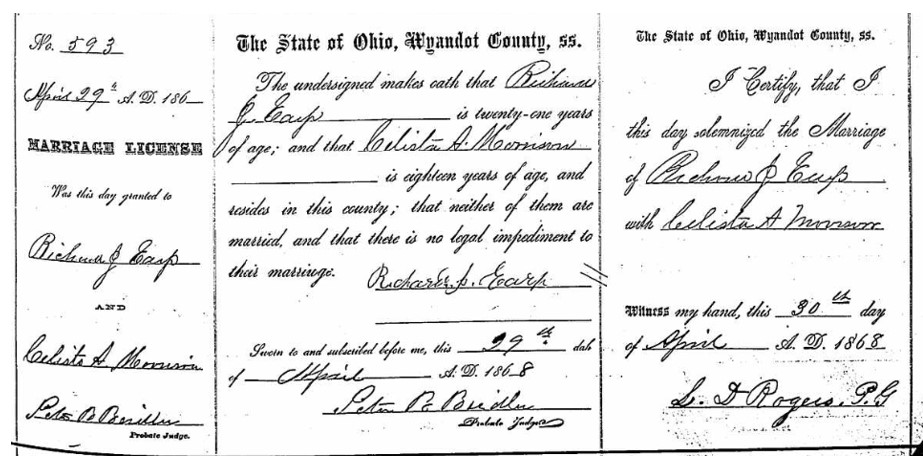 No. 593
April 29th A. D. 186
MARRIAGE LICENSE
Was this day granted to
Richard J Earp
AND
Celista A. Morrison
Peter B Beidler
Probate Judge.
The State of Ohio, Wyandot County, ss.
The undersigned makes oath that Richard
J. Earp is twenty-one years
of age; and that Celista A. Morrison
is eighteen years of age, and
resides in this county; that neither of them are
married, and that there is no legal impediment to
their marriage.
Richard J. Earp
Sworn to and subscribed before me, this 29th. dah
of April A. D. 1868
Peter B Beidler
Probate Judge
The State of Ohio, Wyandot County, ss.
I Certify, that I
this day solemnized the Marriage
of Richard J Earp
with Celista A Morrison
Witness my hand, this 30th day
of April A. D. 1868
L. D Rogers. P. G